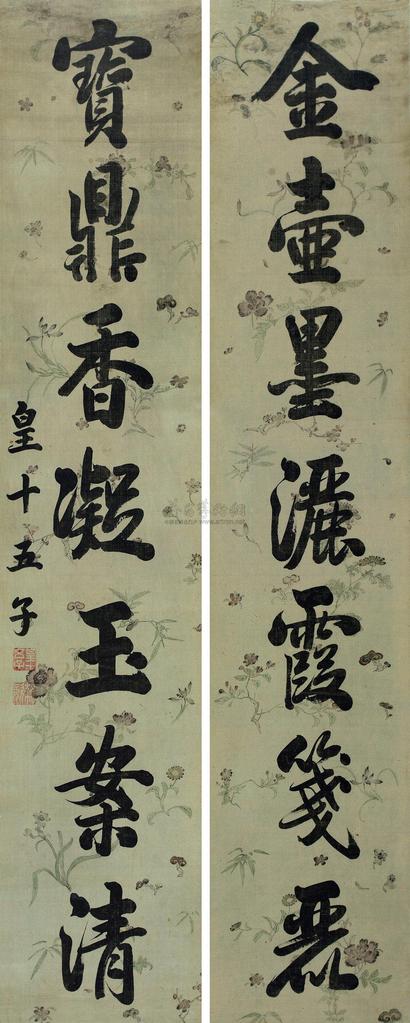 金壺墨灑霞箋麗
寶鼎香凝玉案清
皇十五子